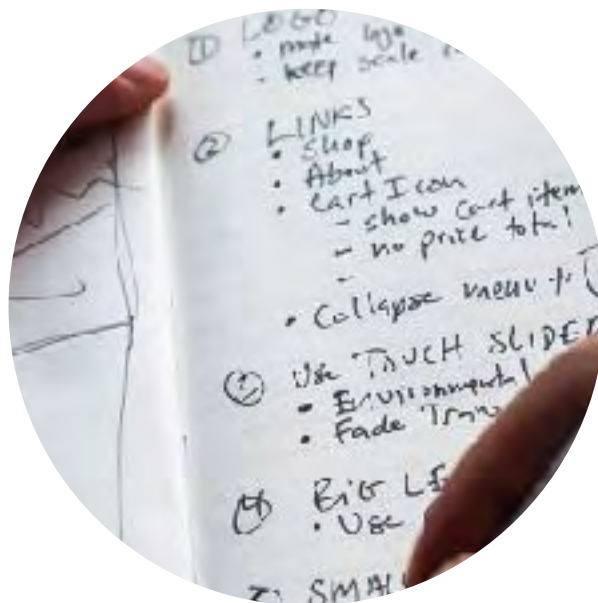 ① LOGO
• make logo
- keep scale
② LINKS
• Shop
• About
• Cart Icon
- show cart item
- no price total
-
• Collapse menu
③ Use TOUCH SLIDER
• Environmental
• Fade
④ BIG
• Use
SMALL